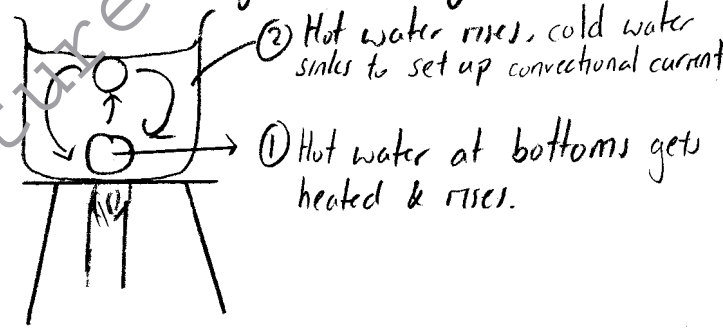 ② Hot water rises, cold water
sinks to set up convectional current
① Hot water at bottoms gets
heated & rises.